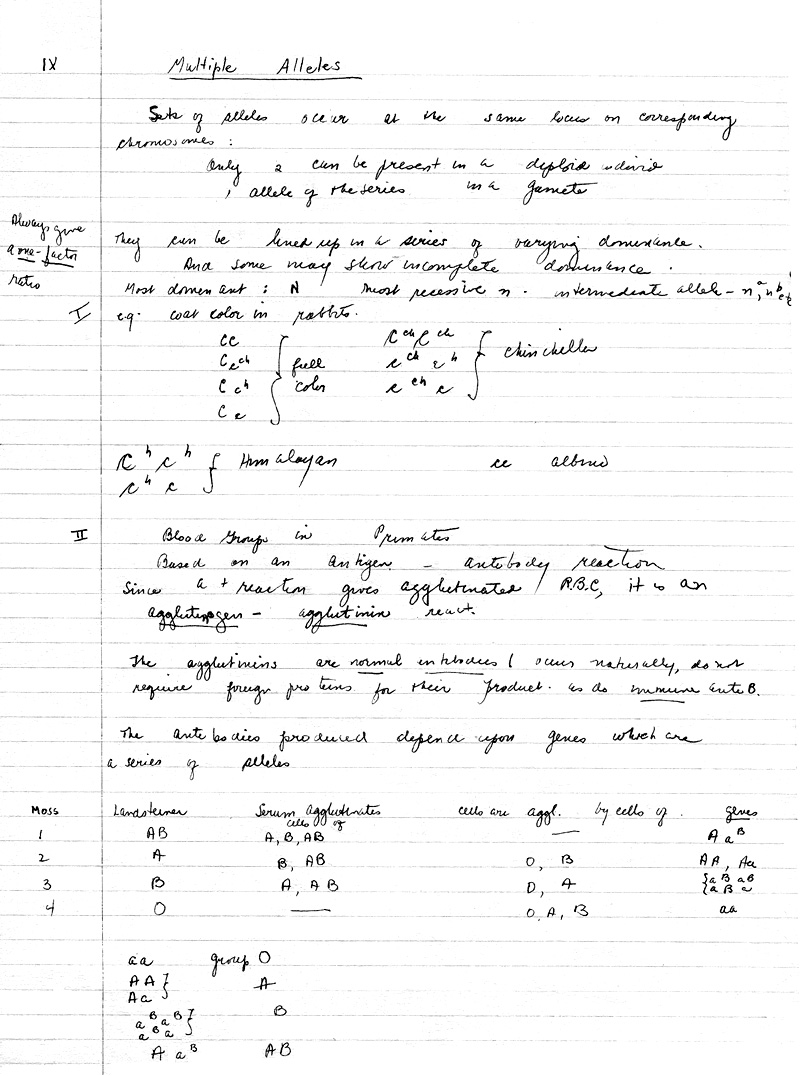 IX Multiple Alleles
Sets of alleles occur at the same locus on corresponding
chromosomes :
Only 2 can be present in a diploid individ
1 allele of the series in a gamete
Always give
a one-factor
ratio
They can be lined up in a series of varying dominance.
And some may show incomplete dominance.
Most dominant : N most recessive n. intermediate allele - nᵃ, nᵇ etc
I e.g. coat color in rabbits.
CC cᶜʰcᶜʰ
Ccᶜʰ full cᶜʰ cʰ chinchilla
C cʰ color cᶜʰ c
C c
cʰ cʰ Himalayan cc albino
cʰ c
II Blood Groups in Primates
Based on an antigen - antibody reaction
Since a + reaction gives agglutinated R.B.C, it is an
agglutinogen - agglutinin react.
The agglutinins are normal antibodies ( occur naturally, do not
require foreign proteins for their product. as do immune anti B.
The antibodies produced depend upon genes which are
a series of alleles
Moss Landsteiner Serum agglutinates cells of cells are aggl. by cells of . genes
1 AB A, B, AB — A aᴮ
2 A B, AB O, B AA, Aa
3 B A, AB O, A { aᴮ aᴮ
aᴮ a
4 O — O, A, B aa
aa group O
AA } A
Aa
aᴮ aᴮ } B
aᴮ a
A aᴮ AB